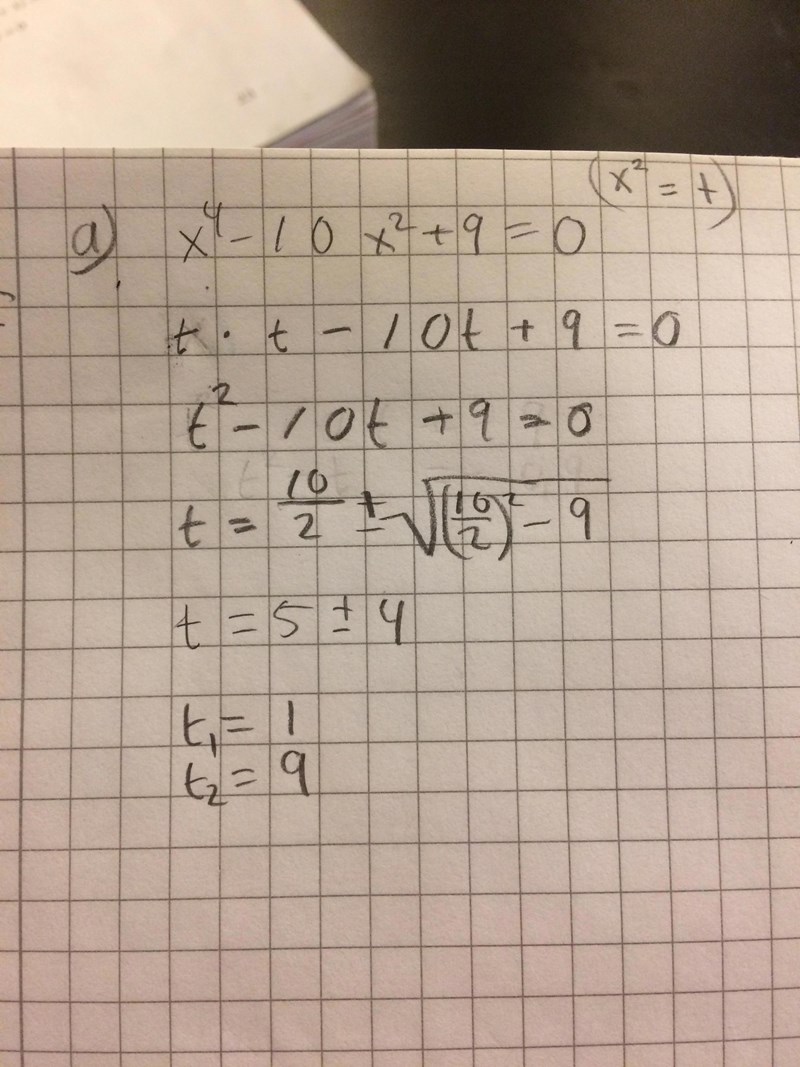 (x² = t)
a) x⁴ - 10x² + 9 = 0
t · t - 10t + 9 = 0
t² - 10t + 9 = 0
t = 10/2 ± √((10/2)² - 9)
t = 5 ± 4
t₁ = 1
t₂ = 9